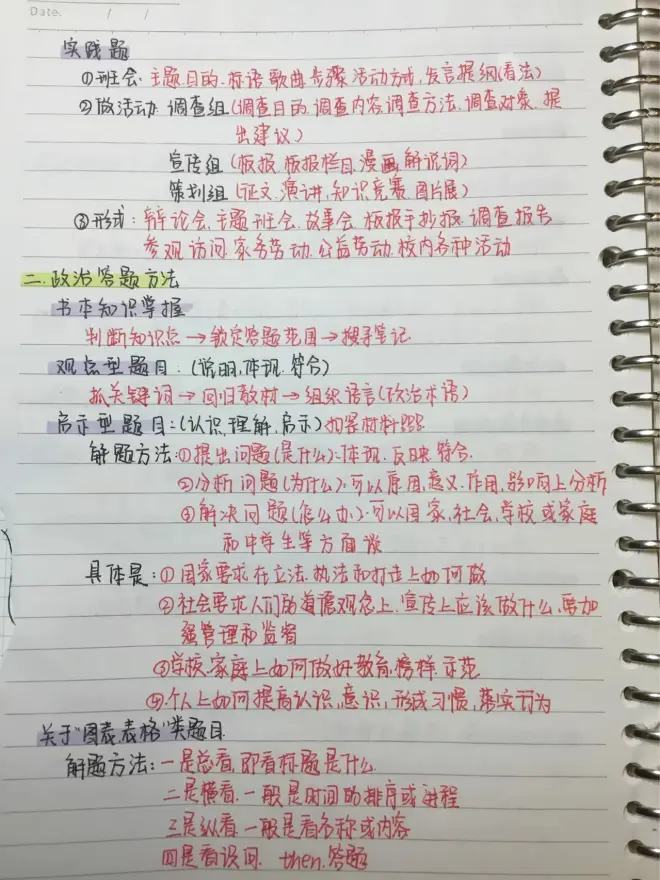 Date.    /    /
实践题
①班会.主题.目的.标语.歌曲.步骤.活动方式.发言提纲(看法)
②做活动.调查组(调查目的.调查内容.调查方法.调查对象.提
出建议)
宣传组(板报.板报栏目.漫画.解说词)
策划组(征文.演讲.知识竞赛.图片展)
③形式:辩论会.主题班会.故事会.板报手抄报.调查报告
参观访问.家务劳动.公益劳动.校内各种活动
二.政治答题方法
书本知识掌握
判断知识点→锁定答题范围→搜寻笔记
观点型题目:(说明.体现.符合)
抓关键词→回归教材→组织语言(政治术语)
启示型题目:(认识.理解.启示)如竖材料
解题方法:①提出问题(是什么):体现.反映.符合.
②分析问题(为什么).可以原因.意义.作用.影响上分析
④解决问题(怎么办).可以国家.社会.学校或家庭
和中学生等方面谈
具体是:①国家要求在立法.执法和打击上如何做
②社会要求人们的道德观念上.宣传上应该做什么,要加
强管理和监督
③学校.家庭上如何做好教育.榜样.示范
④.个人上如何提高认识.意识,形成习惯,落实行为
关于"图表.表格"类题目.
解题方法:一是总看,即看标题是什么.
二是横看.一般是时间的排序或进程
三是纵看.一般是看名称或内容
四是看设问.then.答题